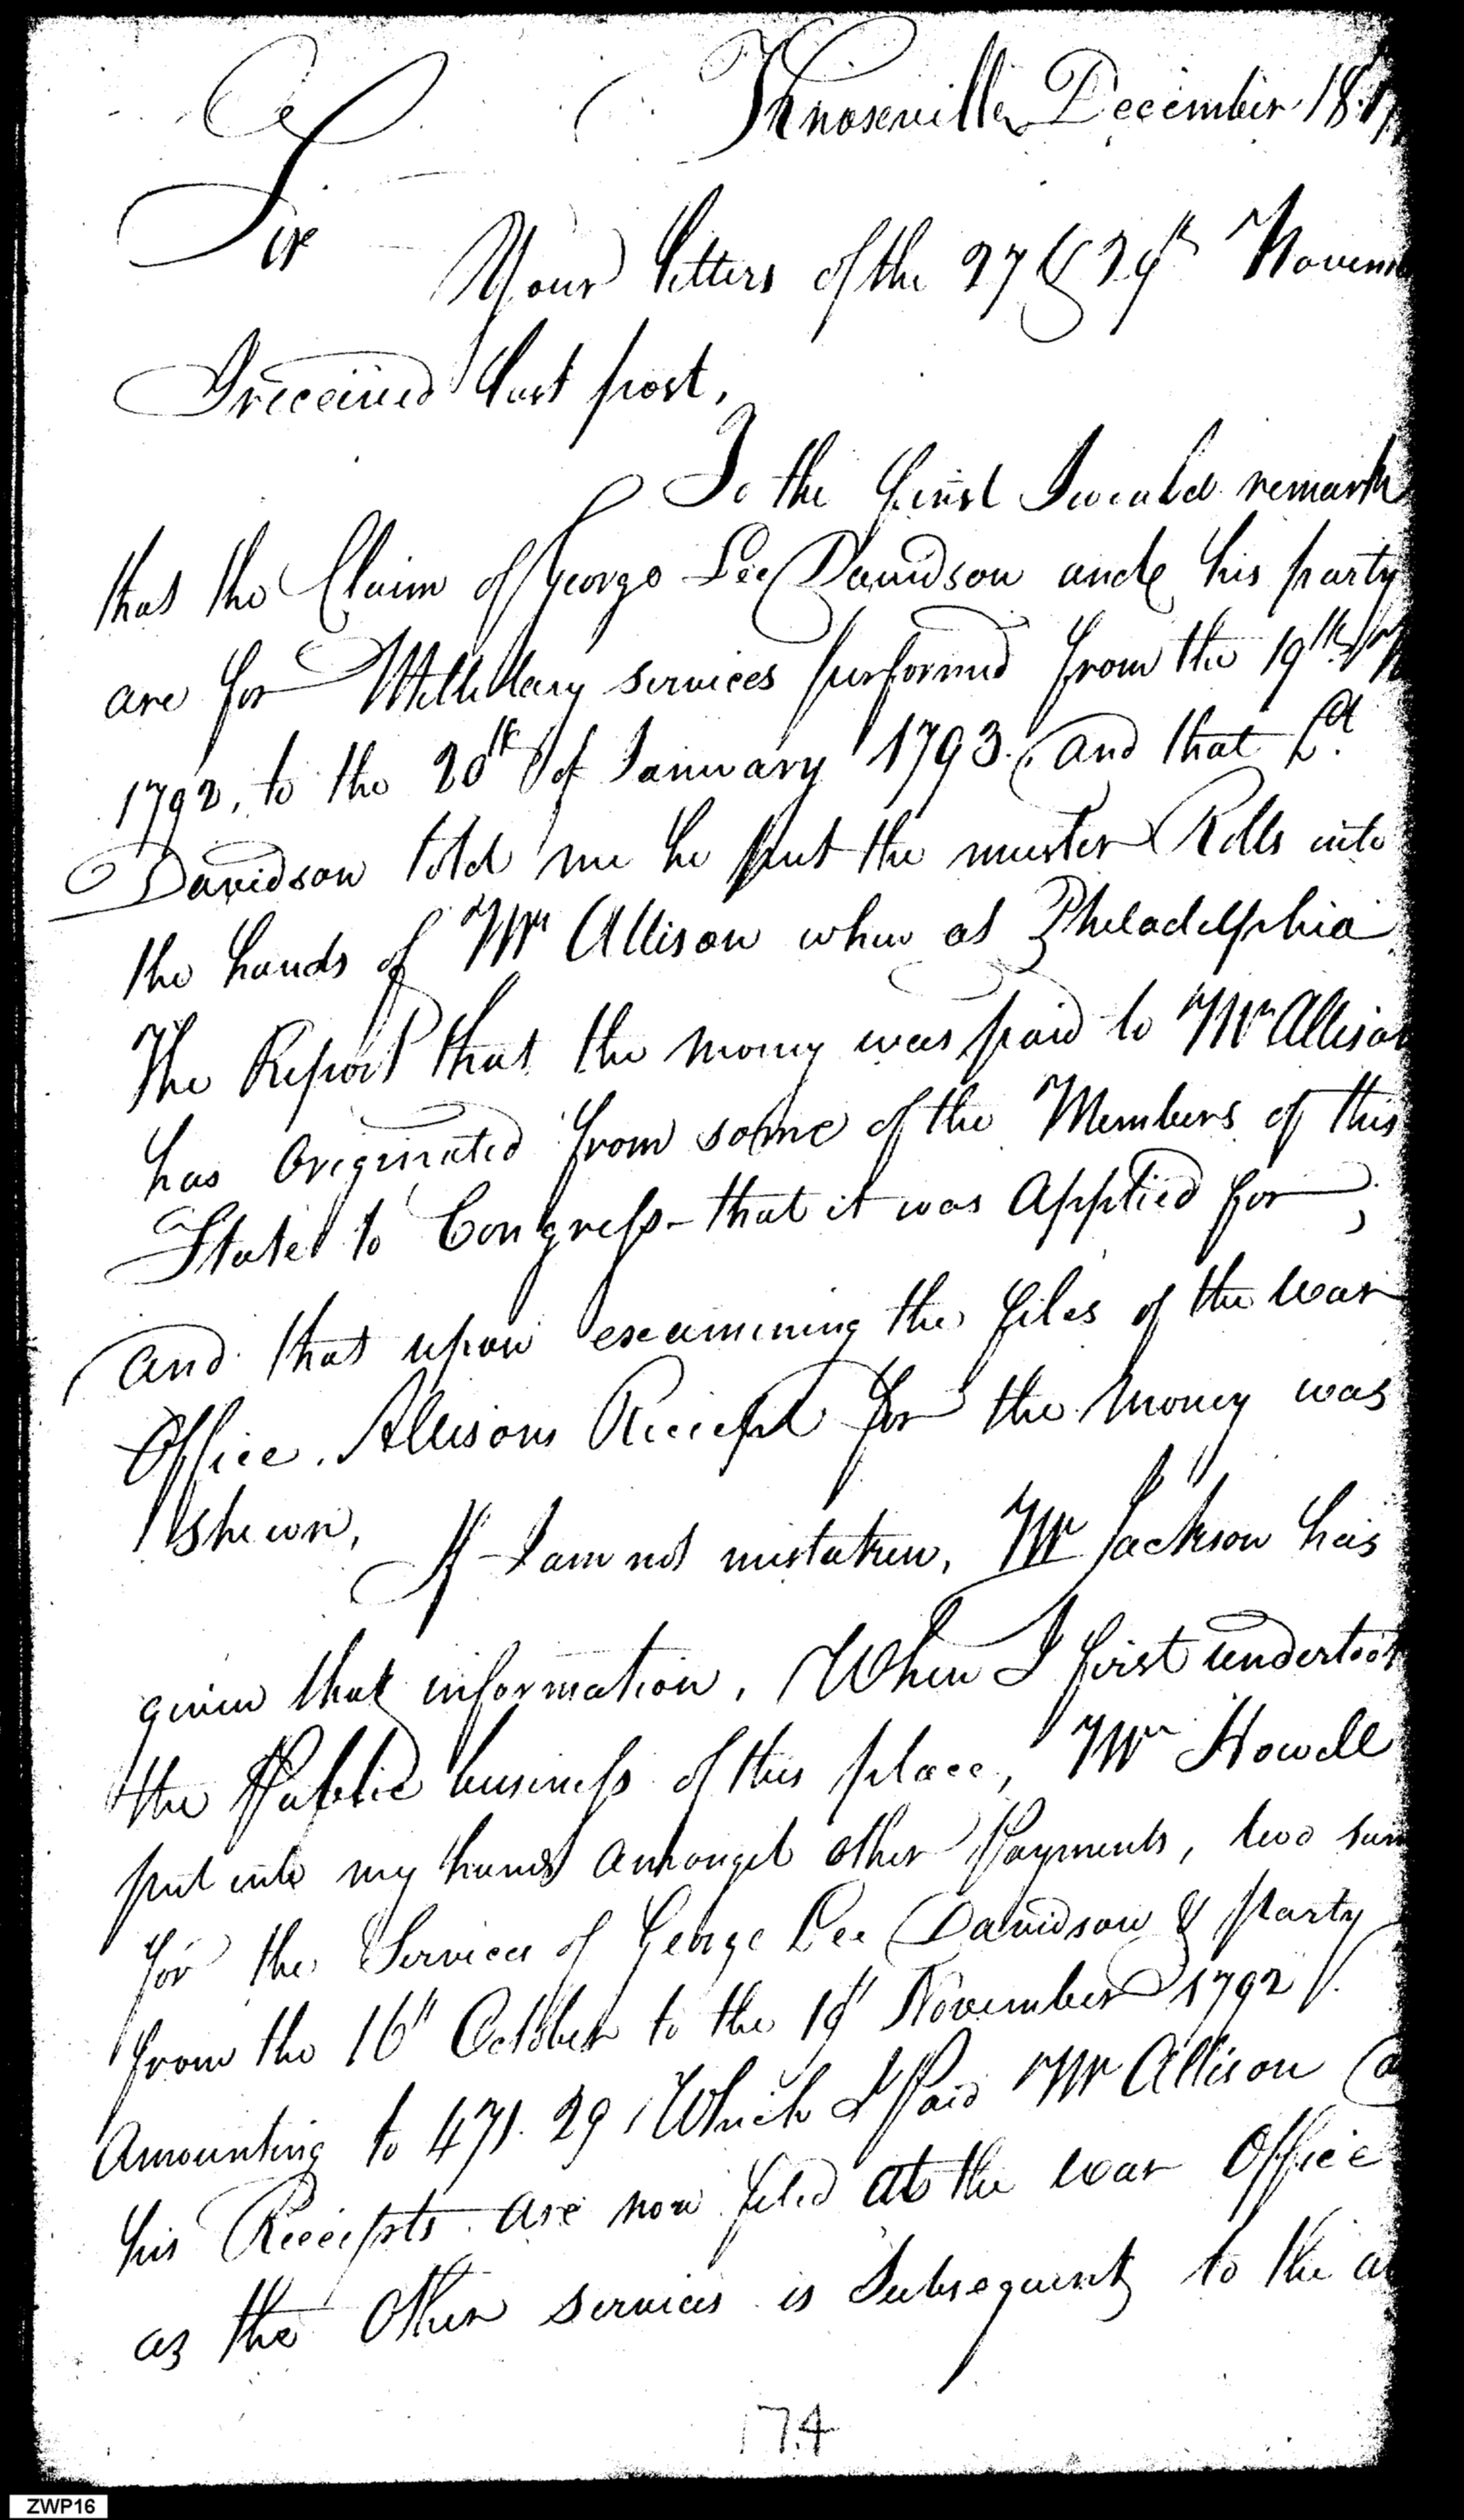 Knoxville December 18.
Sir
Your letters of the 27 & 29th Novem
I received last post,
To the first I would remark
that the Claim of George Lee Davidson and his party
are for Millitary services performed from the 19th
1792, to the 20th of January 1793. and that Lt.
Davidson told me he put the muster Rolls into
the hands of Mr Allison when at Philadelphia
The Report that the money was paid to Mr Allison
has Originated from some of the Members of this
State to Congress - that it was Applied for,
and that upon examining the files of the War
Office. Allisons Receipt for the Money was
shewn, If I am not mistaken, Mr Jackson has
given that information. When I first undertook
the Public business of this place, Mr Howell
put into my hands Amongst other Payments, two sum
for the Services of George Lee Davidson & party
from the 16th October to the 19th November 1792.
Amounting to 471. 29 Which I Paid Mr Allison
his Receipts are now filed at the War Office
as the Other services is Subsequent to the
174
ZWP16